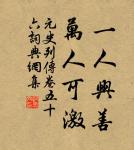 一人興善
萬人可激
元史列傳卷五十
六詞典網集